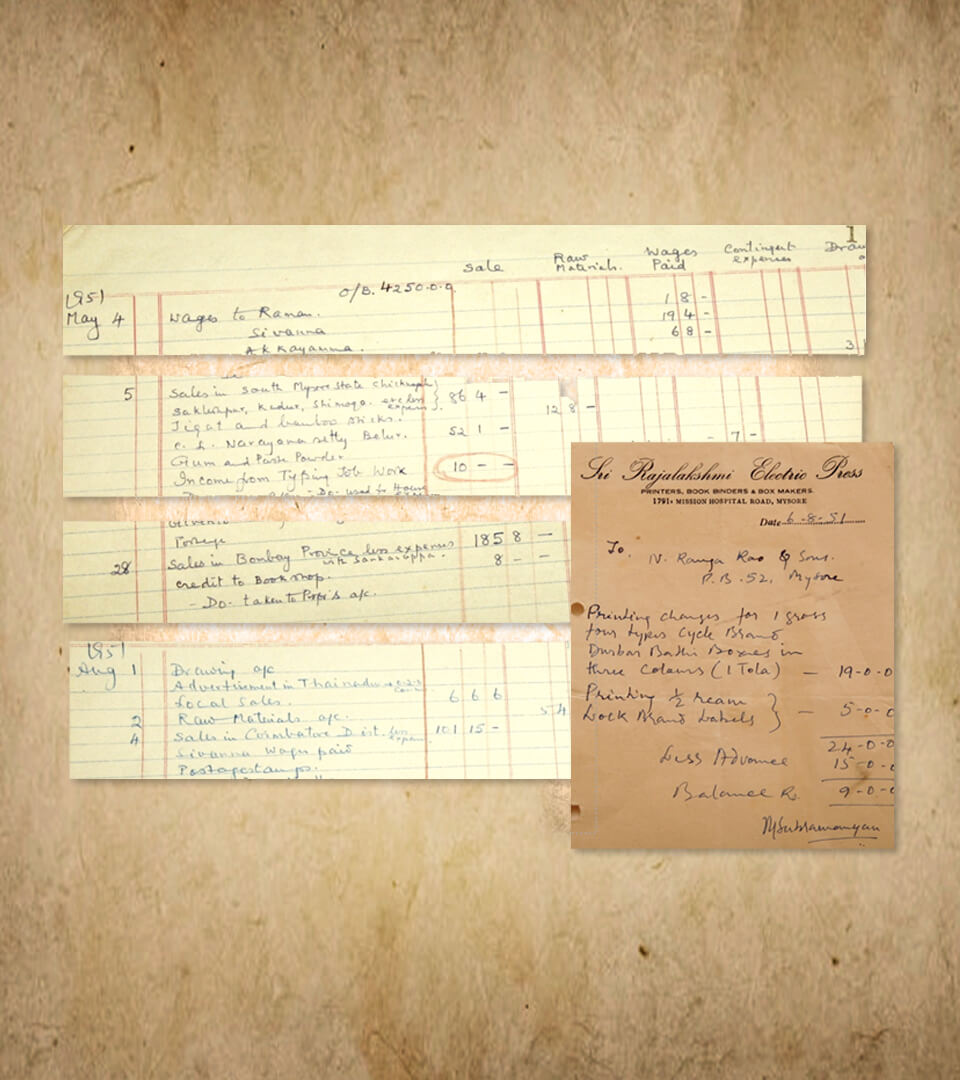 1
Sale Raw Materials. Wages Paid Contingent expenses
O/B. 4250.0.0
1951
May 4 Wages to Raman. 1 8 -
Sivanna 19 4 -
A K Kayanna. 6 8 -
3
5 Sales in South Mysore State
Sakleshpur, Kadur, Shimoga. exc less expenses. 86 4 -
Jigat and bamboo sticks. 12 8 -
C. L. Narayana Setty Belur. 52 1 -
Gum and Powder - 7 -
Income from Typing Job Work 10 - -
- Do - used for House
Postage
28 Sales in Bombay Province less expenses 185 8 -
with Sankarappa.
credit to Bookshop. 8 - -
- Do. taken to Prop's a/c.
1951
Aug 1 Drawing a/c
Advertisement in Thainadu
Local Sales. 6 6 6
2 Raw Materials a/c. 5 4
4 Sales in Coimbatore Dist. less expenses 101 15 -
Sivanna wages paid
Postagestamps.
Sri Rajalakshmi Electric Press
PRINTERS, BOOK BINDERS & BOX MAKERS.
1791, MISSION HOSPITAL ROAD, MYSORE
Date 6-8-51
To.
N. Ranga Rao & Sons.
P.B. 52, Mysore
Printing charges for 1 gross
four types Cycle Brand
Durbar Bathi Boxes in
three Colours (1 Tola) — 19-0-0
Printing ½ ream
Lock Brand Labels — 5-0-0
24-0-0
Less Advance 15-0-0
Balance Rs. 9-0-0
M Subramanyan